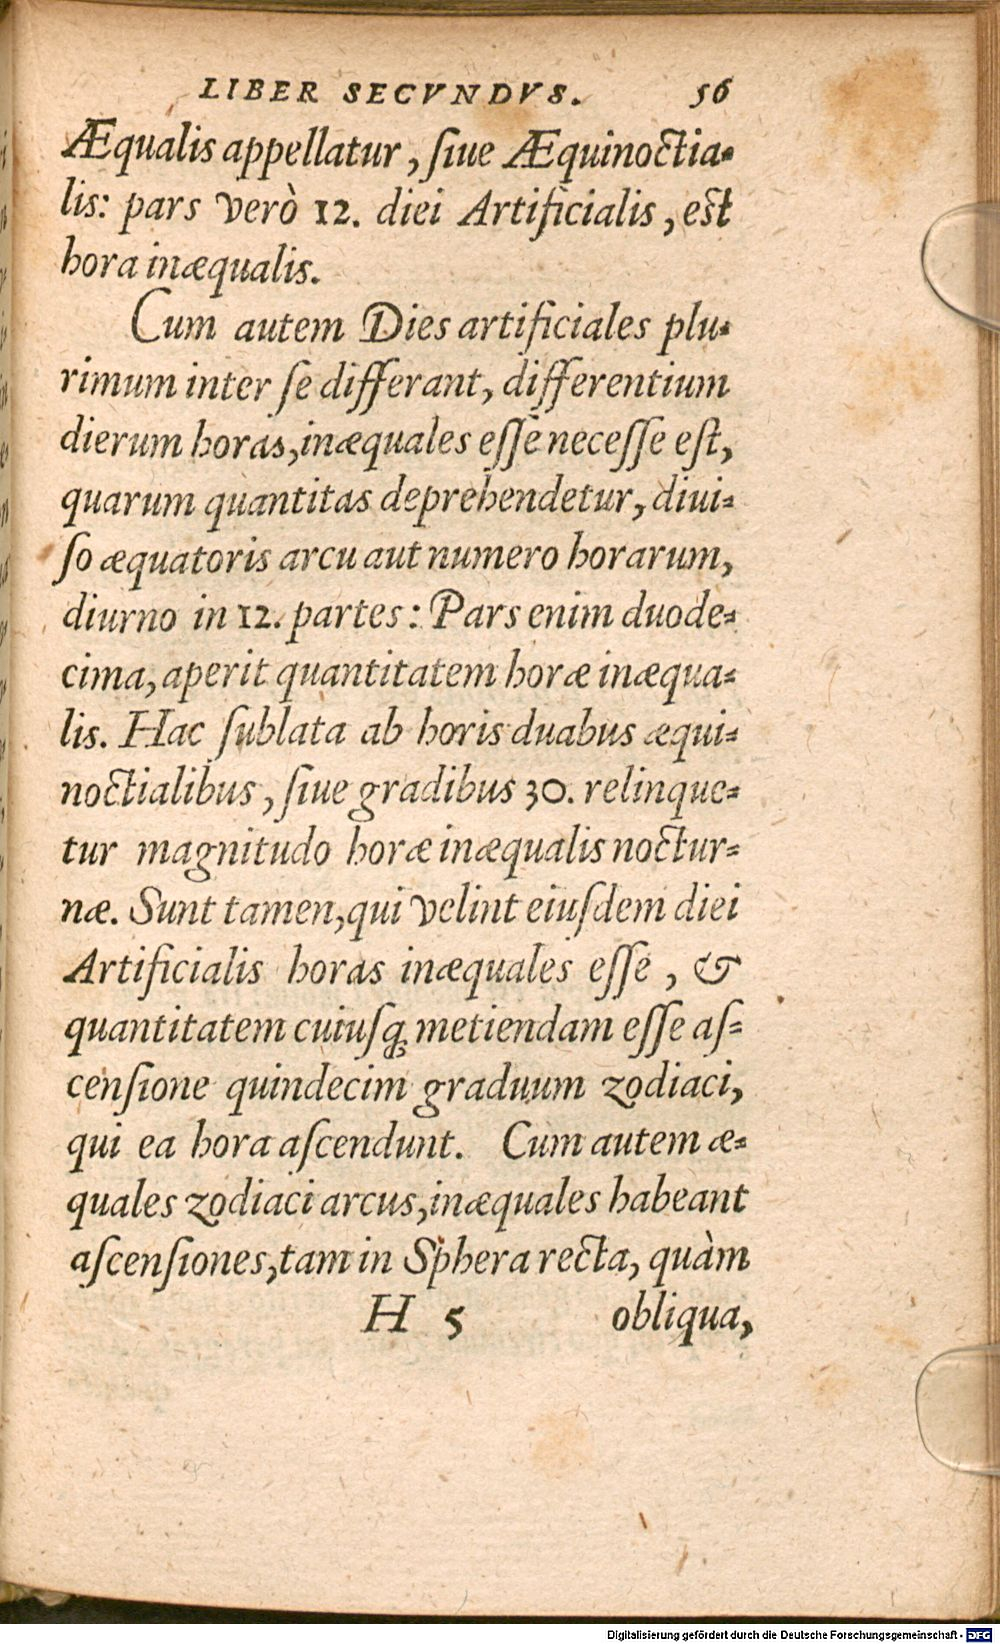 LIBER SECVNDVS. 56
Æqualis appellatur, ſiue Æquinoctia-
lis: pars verò 12. diei Artificialis, eſt
hora inæqualis.
Cum autem Dies artificiales plu-
rimum inter ſe differant, differentium
dierum horas, inæquales eſſe neceſſe eſt,
quarum quantitas deprehendetur, diui-
ſo æquatoris arcu aut numero horarum,
diurno in 12. partes: Pars enim duode-
cima, aperit quantitatem horæ inæqua-
lis. Hac ſublata ab horis duabus æqui-
noctialibus, ſiue gradibus 30. relinque-
tur magnitudo horæ inæqualis noctur-
næ. Sunt tamen, qui velint eiuſdem diei
Artificialis horas inæquales eſſe, &
quantitatem cuiuſq̃ metiendam eſſe aſ-
cenſione quindecim graduum zodiaci,
qui ea hora aſcendunt. Cum autem æ-
quales zodiaci arcus, inæquales habeant
aſcenſiones, tam in Sphera recta, quàm
H 5 obliqua,
Digitalisierung gefördert durch die Deutsche Forschungsgemeinschaft - DFG